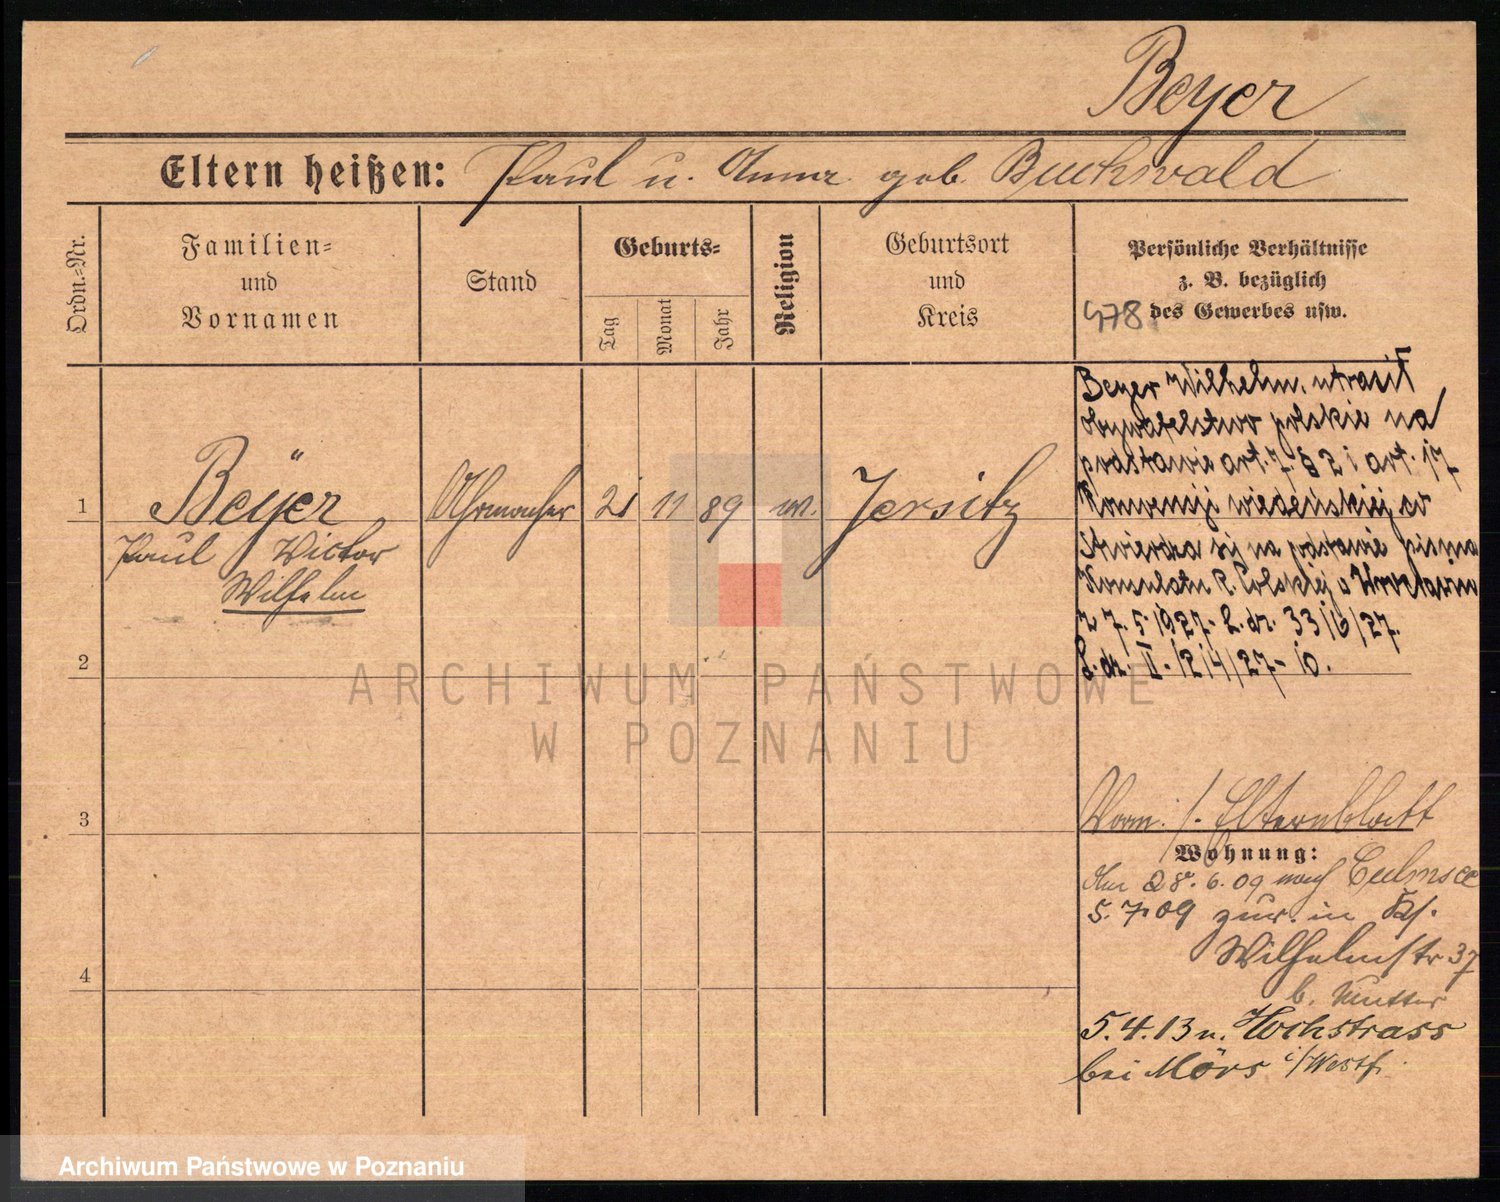 Beyer
Eltern heißen: Paul u. Anna geb. Buchwald
Ordn.=Nr.
Familien=
und
Vornamen
Stand
Geburts=
Tag
Monat
Jahr
Religion
Geburtsort
und
Kreis
Persönliche Verhältnisse
z. B. bezüglich
des Gewerbes usw.
478.
1
Beÿer
Paul Victor
Wilhelm
Uhrmacher
21
11
89
Jersitz
Beyer Wilhelm, utracił
obywatelstwo polskie na
podstawie art. 7. § 2 i art. 17
Konwencji wiedeńskiej co
stwierdza się na podstawie pisma
Konsulatu R. Polskiej w Wrocławiu
z 7. 5. 1927. L. dz. 33/6/27.
L. dz. II - 1214/27 - 10.
2
3
4
Vorm. s/. Elternblatt
Wohnung:
28. 6. 09 nach Culmsee
5. 7. 09 zur. in
Wilhelmstr 37
b. Mutter
5. 4. 13 n. Hochstrass
bei Mörs i/Westf.
ARCHIWUM PAŃSTWOWE
W POZNANIU
Archiwum Państwowe w Poznaniu